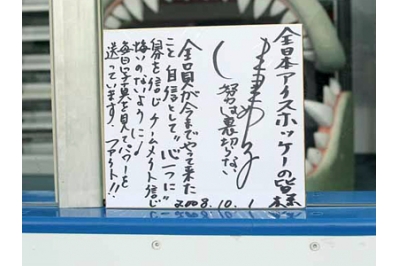 全日本アイスホッケーの皆様
努力は裏切らない
全員が今までやって来た
こと自信として"心一つに"
絆を信じチームメイト信じ
悔いのないように!
毎日写真を見てパワーを
送っています! ファイト!!
2008.10.1